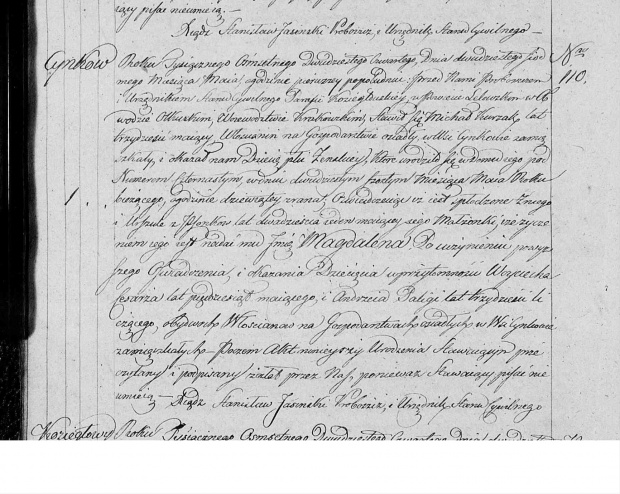 cy pisać nieumieią. —
Xiądz Stanisław Jasinski Proboszcz, i Urzędnik Stanu Cywilnego —
Cynków
Roku Tysiącznego Ośmsetnego Dwudziestego Czwartego, Dnia dwudziestego siod
Nro 110.
mego Miesiąca Maia, o godzinie pierwszy popołudniu, Przed Nami Proboszczem
i Urzędnikiem Stanu Cywilnego Parafii Koziegłowskiey, w Powiecie Lelowskim w Ob
wodzie Olkuskim, Woiewodztwie Krakowskim, Stawił się Michał Kurzak, lat
trzydzieści maiący Włoscianin na Gospodarstwie osiadły, w Wsi Cynkowie zamie
szkały, i okazał nam Dziecię płci Zenskiey, które urodziło się w domu iego pod
Numerem Czternastym, w dniu dwudziestym szostym Miesiąca Maia Roku
bieżącego, o godzinie dziewiąty zrana, Oświadczaiąc iż iest spłodzone z niego
1.
i Urszule z lat dwadzieścia ieden maiący iego Małzonki, i że życze
niem iego iest nadać mu Imię Magdalena. Po uczynieniu powyz
szego Oświadczenia, i okazania Dziecięcia w przytomności Woyciecha
Cesarza lat pięćdziesiąt maiącego, i Andrzeia Paligi lat trzydzieści li
czącego, obydwoch Włoscianow na Gospodarstwach osiadłych w Wsi Cynkowie
zamięszkałych. Poczem Akt ninieyszy Urodzenia Stawaiącym prze
czytany i podpisany został przez Nas, ponieważ Stawaiący pisać nie
umieią — Xiądz Stanisław Jasinski Proboszcz, i Urzędnik Stanu Cywilnego
Koziegłowy Roku Tysiącznego Osmsetnego Dwudziestego Czwartego, dnia